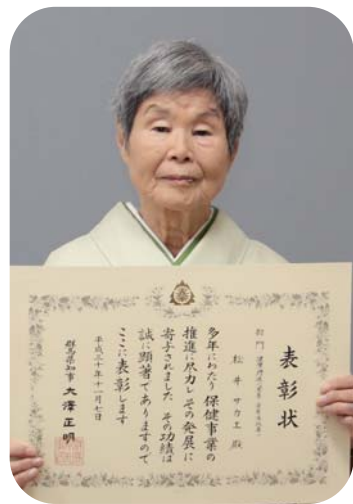 表彰状
部門
松井サカエ殿
多年にわたり保健事業の
推進に尽力しその発展に
寄与されました その功績は
誠に顕著でありますので
ここに表彰します
平成三十年十一月七日
群馬県知事 大澤正明